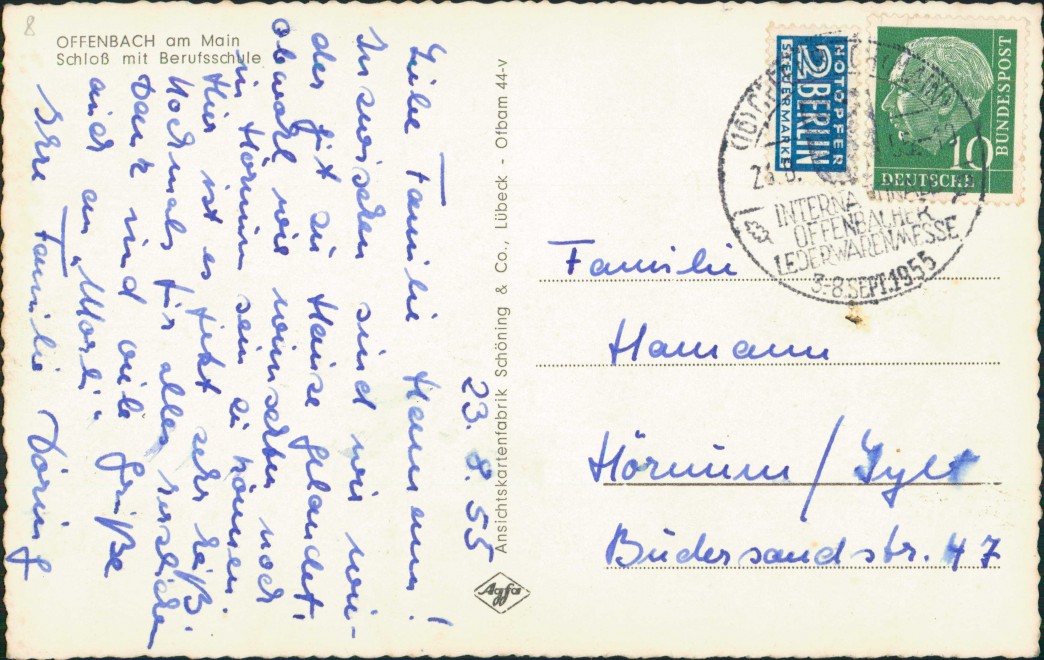 8
OFFENBACH am Main
Schloß mit Berufsschule
23.8.55
Liebe Familie Hamann!
Inzwischen sind wir wie-
der gut zu Hause gelandet.
obwohl wir wünschten noch
in Hörnum sein zu können.
Hier ist es jetzt sehr heiß.
Nochmals für alles herzlichen
Dank und viele Grüße
auch an "Morli"
Ihre Familie Döring
Ansichtskartenfabrik Schöning & Co., Lübeck - Ofbam 44-v
Agfa
NOTOPFER
2 BERLIN
STEUERMARKE
10
DEUTSCHE
BUNDESPOST
(16) OFFENBACH (MAIN)
INTERNATIONALE
OFFENBACHER
LEDERWARENMESSE
3-8.SEPT.1955
Familie
Hamann
Hörnum/Sylt
Budersandstr. 47